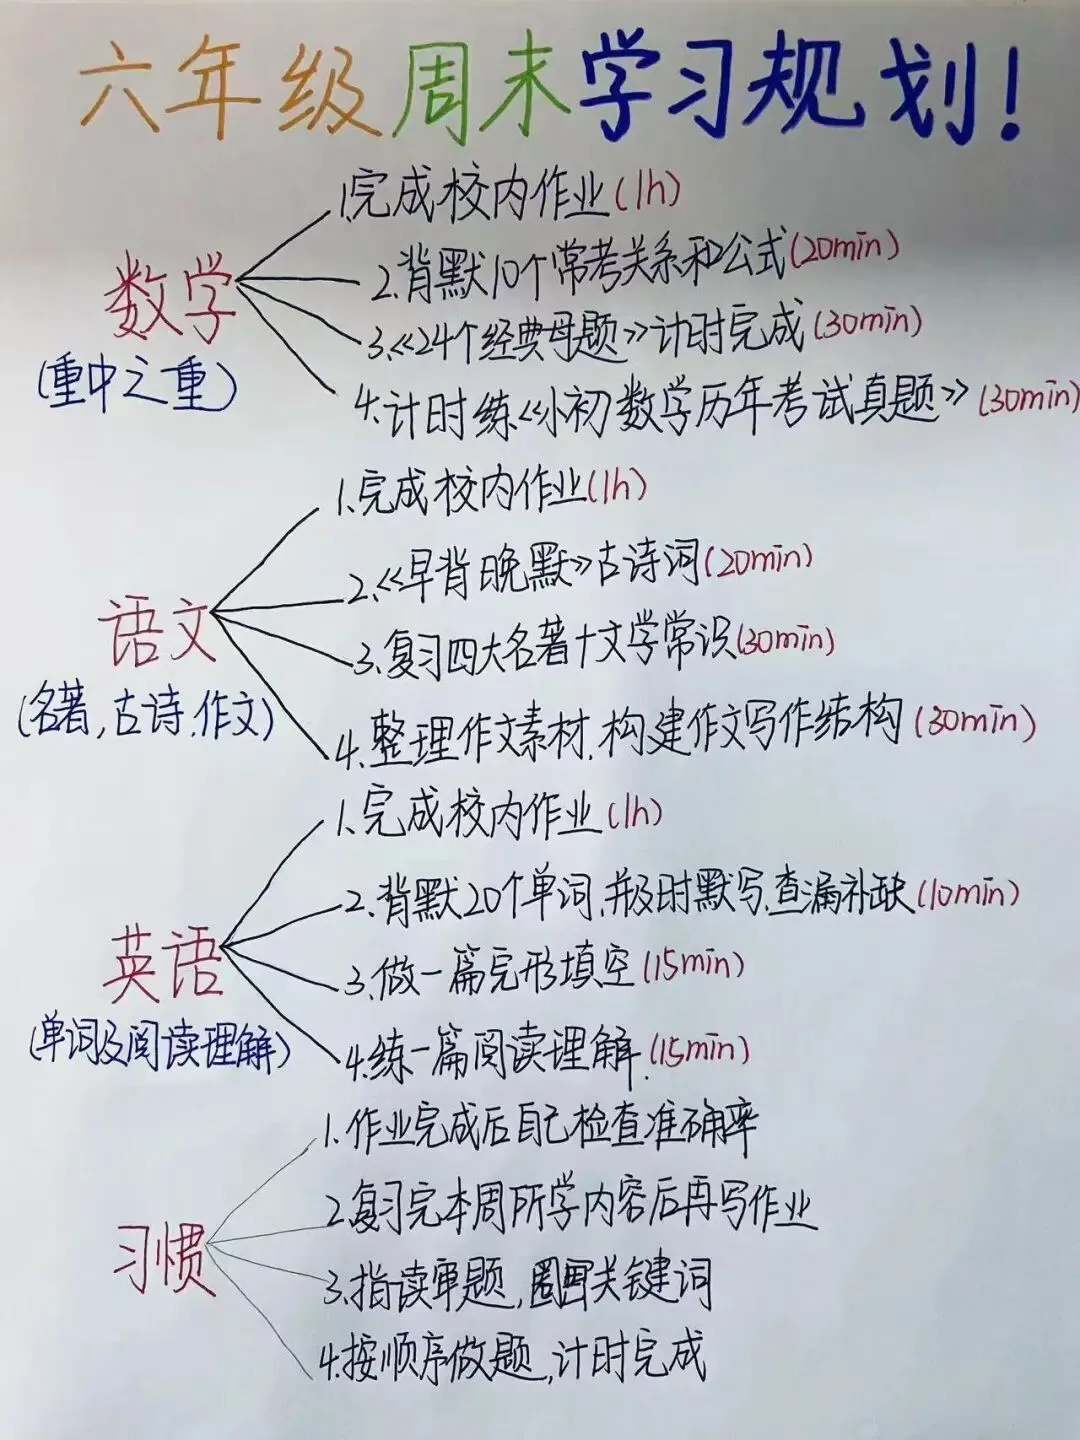 六年级周末学习规划!
数学
(重中之重)
1.完成校内作业(1h)
2.背默10个常考关系和公式(20min)
3.《24个经典母题》计时完成(30min)
4.计时练《小初数学历年考试真题》(30min)
语文
(名著,古诗.作文)
1.完成校内作业(1h)
2.《早背晚默》古诗词(20min)
3.复习四大名著十文学常识(30min)
4.整理作文素材.构建作文写作结构(30min)
英语
(单词及阅读理解)
1.完成校内作业(1h)
2.背默20个单词,并及时默写.查漏补缺(10min)
3.做一篇完形填空(15min)
4.练一篇阅读理解.(15min)
习惯
1.作业完成后自己检查准确率
2.复习完本周所学内容后再写作业
3.指读审题,圈画关键词
4.按顺序做题,计时完成